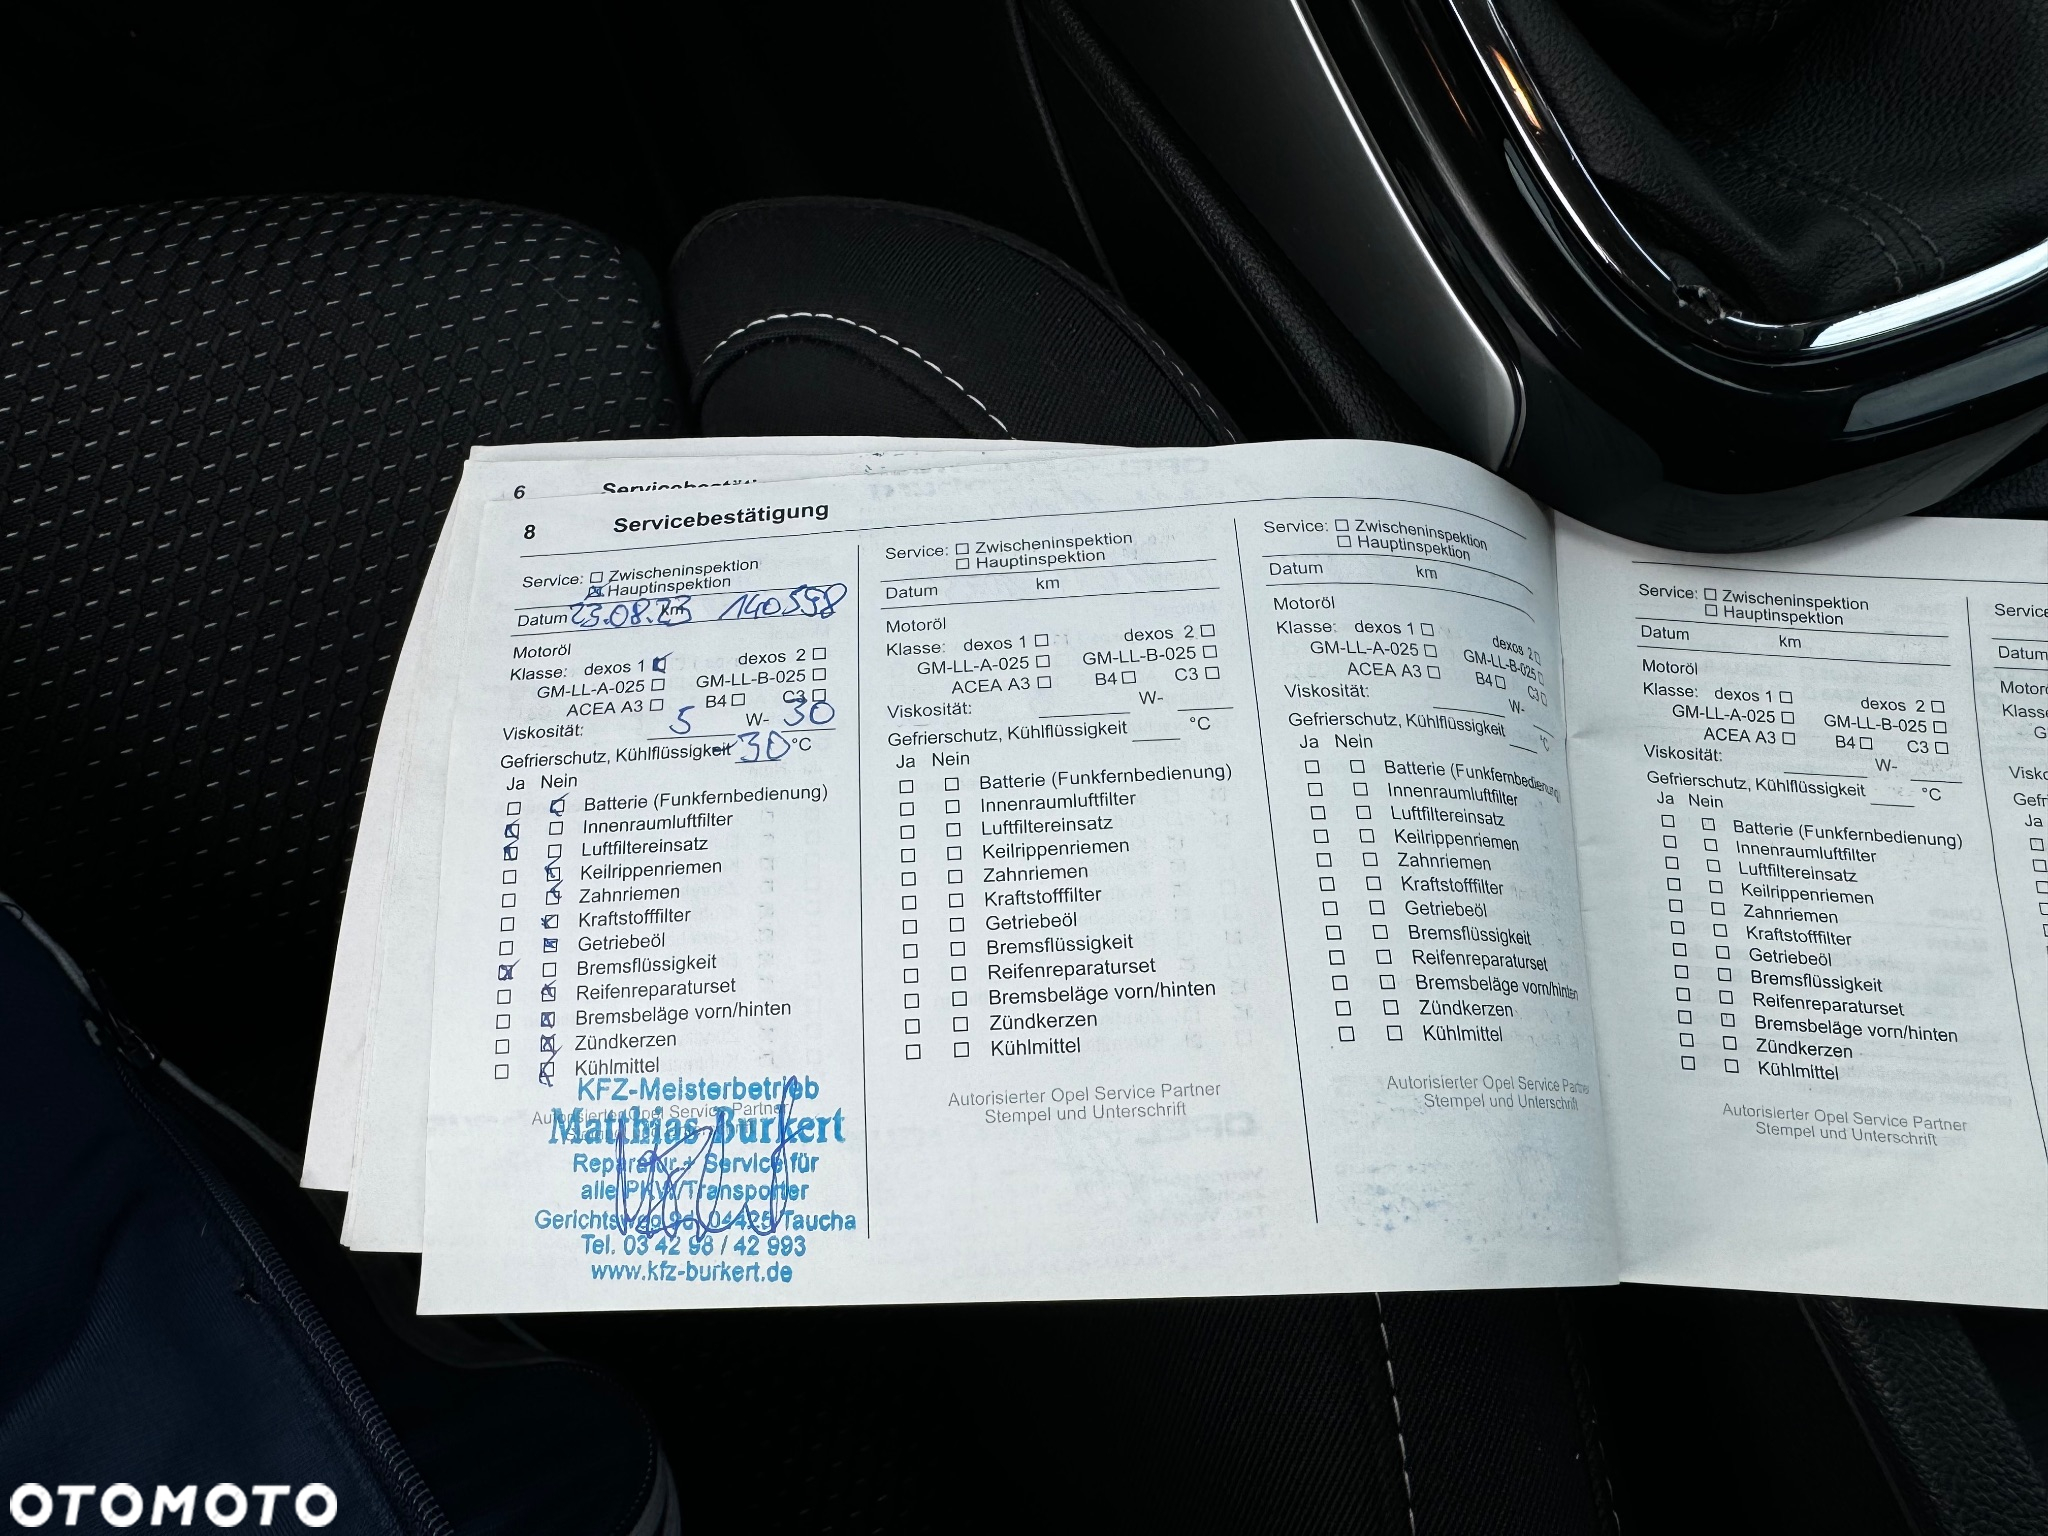 6 Servicebestätigung
8 Servicebestätigung
Service: Zwischeninspektion
Hauptinspektion
Datum 23.08.23 km 140558
Motoröl
Klasse: dexos 1 dexos 2
GM-LL-A-025 GM-LL-B-025
ACEA A3 B4 C3
Viskosität: 5 W- 30
Gefrierschutz, Kühlflüssigkeit -30 °C
Ja Nein
Batterie (Funkfernbedienung)
Innenraumluftfilter
Luftfiltereinsatz
Keilrippenriemen
Zahnriemen
Kraftstofffilter
Getriebeöl
Bremsflüssigkeit
Reifenreparaturset
Bremsbeläge vorn/hinten
Zündkerzen
Kühlmittel
Autorisierter Opel Service Partner
KFZ-Meisterbetrieb
Matthias Burkert
Reparatur + Service für
alle PKW/Transporter
Gerichtsweg 2d, 04425 Taucha
Tel. 03 42 98 / 42 993
www.kfz-burkert.de
Service: Zwischeninspektion
Hauptinspektion
Datum km
Motoröl
Klasse: dexos 1 dexos 2
GM-LL-A-025 GM-LL-B-025
ACEA A3 B4 C3
Viskosität: W-
Gefrierschutz, Kühlflüssigkeit °C
Ja Nein
Batterie (Funkfernbedienung)
Innenraumluftfilter
Luftfiltereinsatz
Keilrippenriemen
Zahnriemen
Kraftstofffilter
Getriebeöl
Bremsflüssigkeit
Reifenreparaturset
Bremsbeläge vorn/hinten
Zündkerzen
Kühlmittel
Autorisierter Opel Service Partner
Stempel und Unterschrift
Service: Zwischeninspektion
Hauptinspektion
Datum km
Motoröl
Klasse: dexos 1 dexos 2
GM-LL-A-025 GM-LL-B-025
ACEA A3 B4 C3
Viskosität: W-
Gefrierschutz, Kühlflüssigkeit °C
Ja Nein
Batterie (Funkfernbedienung)
Innenraumluftfilter
Luftfiltereinsatz
Keilrippenriemen
Zahnriemen
Kraftstofffilter
Getriebeöl
Bremsflüssigkeit
Reifenreparaturset
Bremsbeläge vorn/hinten
Zündkerzen
Kühlmittel
Autorisierter Opel Service Partner
Stempel und Unterschrift
Service: Zwischeninspektion
Hauptinspektion
Datum km
Motoröl
Klasse: dexos 1 dexos 2
GM-LL-A-025 GM-LL-B-025
ACEA A3 B4 C3
Viskosität: W-
Gefrierschutz, Kühlflüssigkeit °C
Ja Nein
Batterie (Funkfernbedienung)
Innenraumluftfilter
Luftfiltereinsatz
Keilrippenriemen
Zahnriemen
Kraftstofffilter
Getriebeöl
Bremsflüssigkeit
Reifenreparaturset
Bremsbeläge vorn/hinten
Zündkerzen
Kühlmittel
Autorisierter Opel Service Partner
Stempel und Unterschrift
Service
Datum
Motorö
Klasse
G
Visko
Gefr
Ja
OTOMOTO